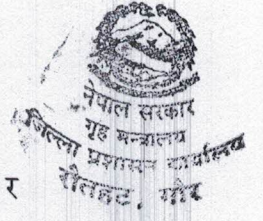 नेपाल सरकार
गृह मन्त्रालय
जिल्ला प्रशासन कार्यालय
रौतहट, गौर
र